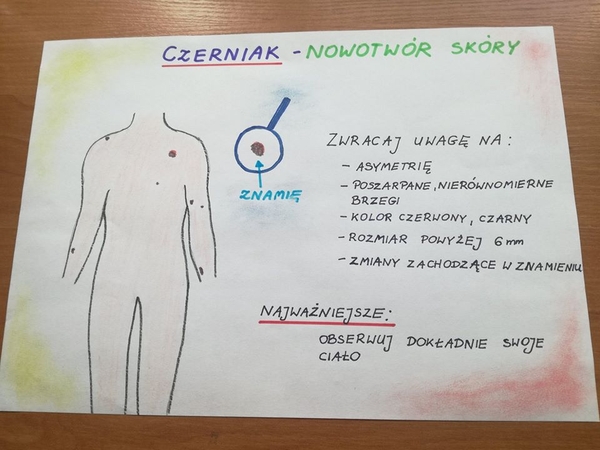 CZERNIAK - NOWOTWÓR SKÓRY
ZNAMIĘ
ZWRACAJ UWAGĘ NA:
- ASYMETRIĘ
- POSZARPANE, NIERÓWNOMIERNE
BRZEGI
- KOLOR CZERWONY, CZARNY
- ROZMIAR POWYŻEJ 6 mm
- ZMIANY ZACHODZĄCE W ZNAMIENIU
NAJWAŻNIEJSZE:
OBSERWUJ DOKŁADNIE SWOJE
CIAŁO